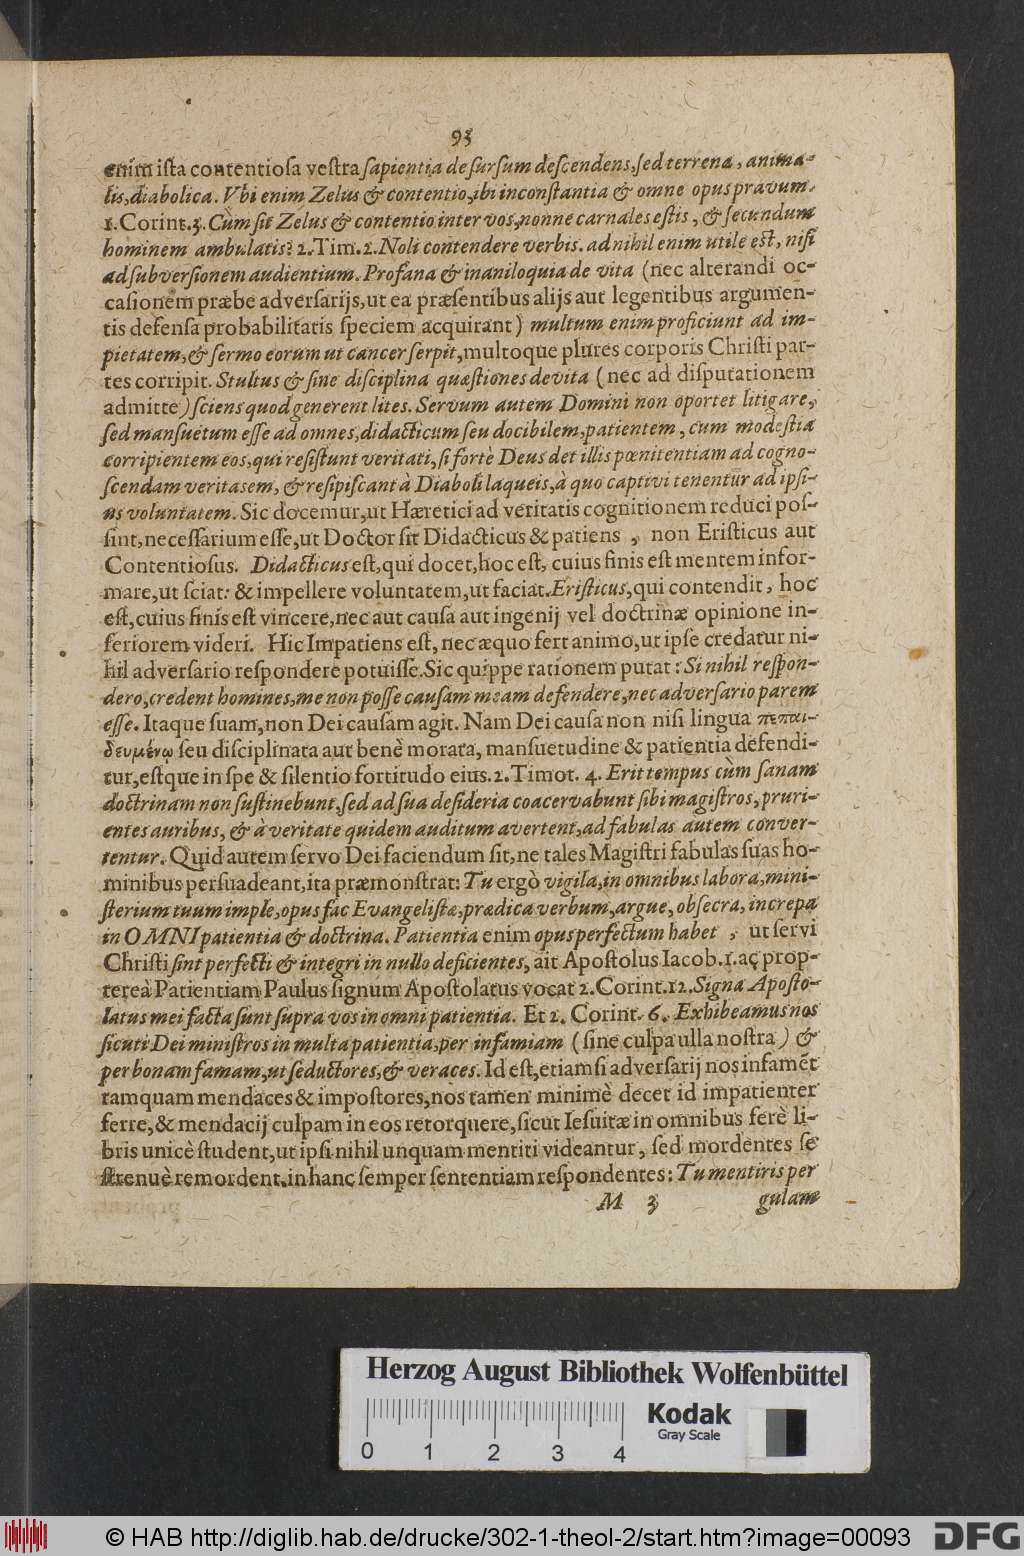 93
enim ista contentiosa vestra sapientia desursum descendens, sed terrena, anima-
lis, diabolica. Vbi enim Zelus & contentio, ibi inconstantia & omne opus pravum.
1. Corint. 3. Cùm sit Zelus & contentio inter vos, nonne carnales estis, & secundum
hominem ambulatis? 2. Tim. 2. Noli contendere verbis. ad nihil enim utile est, nisi
ad subversionem audientium. Profana & inaniloquia de vita (nec alterandi oc-
casionem præbe adversarijs, ut ea præsentibus alijs aut legentibus argumen-
tis defensa probabilitatis speciem acquirant) multum enim proficiunt ad im-
pietatem, & sermo eorum ut cancer serpit, multoque plures corporis Christi par-
tes corripit. Stultus & sine disciplina quæstiones devita (nec ad disputationem
admitte) sciens quod generent lites. Servum autem Domini non oportet litigare,
sed mansuetum esse ad omnes, didacticum seu docibilem, patientem, cum modestia
corripientem eos, qui resistunt veritati, si fortè Deus det illis pœnitentiam ad cogno-
scendam veritasem, & resipiscant à Diaboli laqueis, à quo captivi tenentur ad ipsi-
us voluntatem. Sic docemur, ut Hæretici ad veritatis cognitionem reduci pos-
sint, necessarium esse, ut Doctor sit Didacticus & patiens, non Eristicus aut
Contentiosus. Didacticus est, qui docet, hoc est, cuius finis est mentem infor-
mare, ut sciat: & impellere voluntatem, ut faciat. Eristicus, qui contendit, hoc
est, cuius finis est vincere, nec aut causa aut ingenij vel doctrinæ opinione in-
feriorem videri. Hic Impatiens est, nec æquo fert animo, ut ipse credatur ni-
hil adversario respondere potuisse. Sic quippe rationem putat: Si nihil respon-
dero, credent homines, me non posse causam meam defendere, nec adversario parem
esse. Itaque suam, non Dei causam agit. Nam Dei causa non nisi lingua πεπαι-
δευμένῳ seu disciplinata aut benè morata, mansuetudine & patientia defendi-
tur, estque in spe & silentio fortitudo eius. 2. Timot. 4. Erit tempus cùm sanam
doctrinam non sustinebunt, sed ad sua desideria coacervabunt sibi magistros, pruri-
entes auribus, & à veritate quidem auditum avertent, ad fabulas autem conver-
tentur. Quid autem servo Dei faciendum sit, ne tales Magistri fabulas suas ho-
minibus persuadeant, ita præmonstrat: Tu ergò vigila, in omnibus labora, mini-
sterium tuum imple, opus fac Evangelistæ, prædica verbum, argue, obsecra, increpa
in OMNI patientia & doctrina. Patientia enim opus perfectum habet, ut servi
Christi sint perfecti & integri in nullo deficientes, ait Apostolus Iacob. 1. ac prop-
tereà Patientiam Paulus signum Apostolatus vocat 2. Corint. 12. Signa Aposto-
latus mei facta sunt supra vos in omni patientia. Et 2. Corint. 6. Exhibeamus nos
sicuti Dei ministros in multa patientia, per infamiam (sine culpa ulla nostra) &
per bonam famam, ut seductores, & veraces. Id est, etiamsi adversarij nos infamēt
tamquam mendaces & impostores, nos tamen minimè decet id impatienter
ferre, & mendacij culpam in eos retorquere, sicut Iesuitæ in omnibus ferè li-
bris unicè student, ut ipsi nihil unquam mentiti videantur, sed mordentes se
strenuè remordent. in hanc semper sententiam respondentes: Tu mentiris per
M 3 gulam
Herzog August Bibliothek Wolfenbüttel
Kodak
Gray Scale
0 1 2 3 4
© HAB http://diglib.hab.de/drucke/302-1-theol-2/start.htm?image=00093
DFG